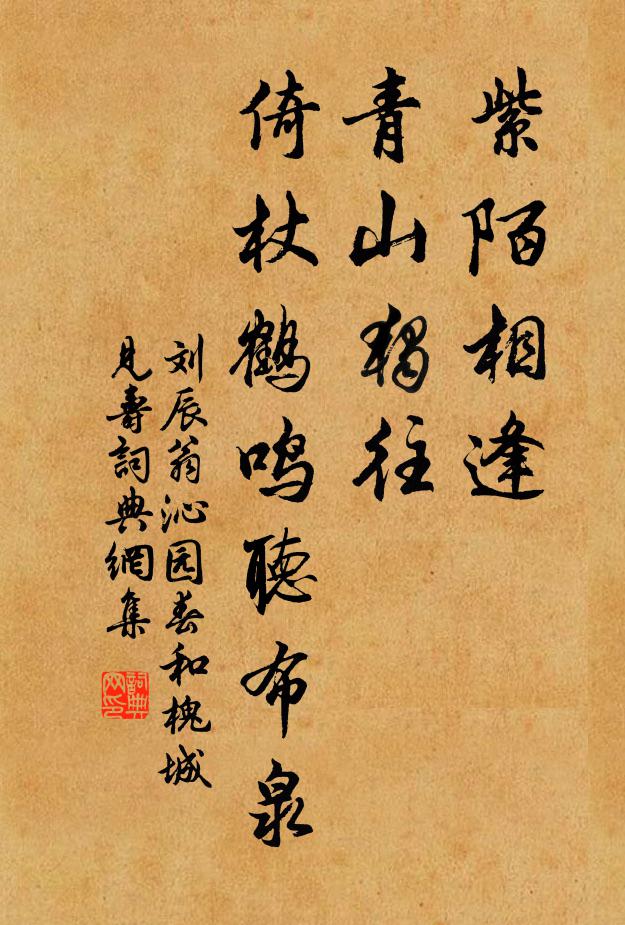 紫陌相逢
青山獨往
倚杖鶴鳴聽布泉
刘辰翁沁园春和槐城
見壽詞典網集
詞典网印